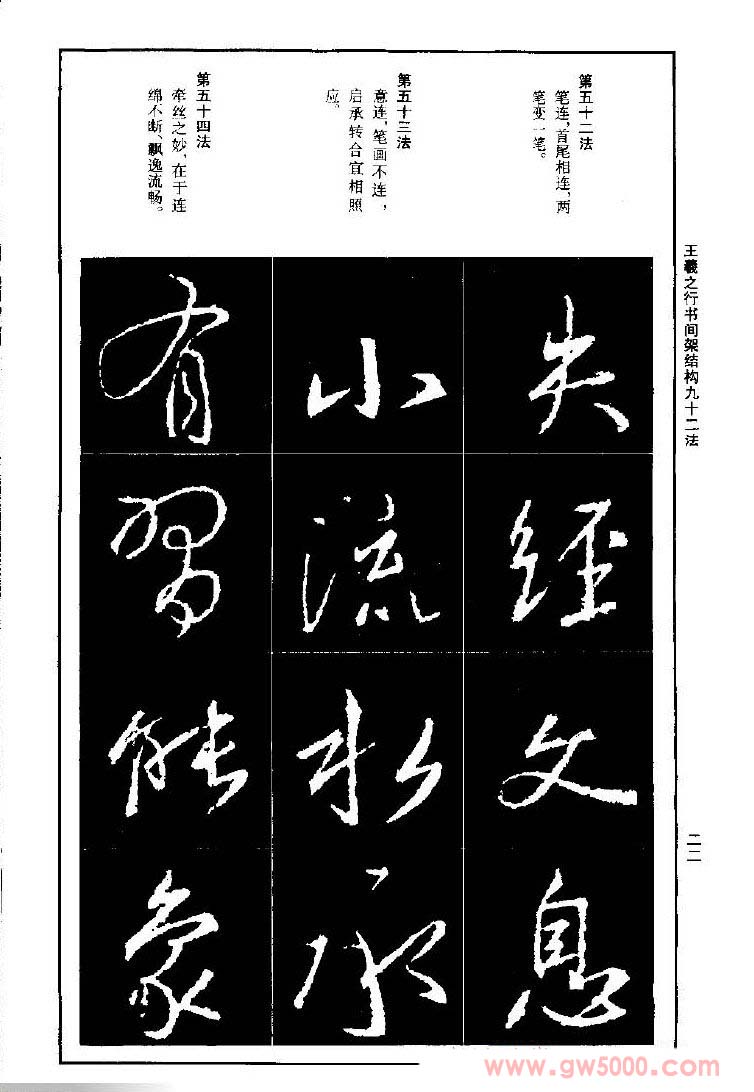 王羲之行书间架结构九十二法
二二
第五十二法
笔连,首尾相连,两
笔变一笔。
第五十三法
意连,笔画不连,
启承转合宜相照
应。
第五十四法
牵丝之妙,在于连
绵不断、飘逸流畅。
失
经
文
息
小
流
水
承
有
習
能
象
www.gw5000.com